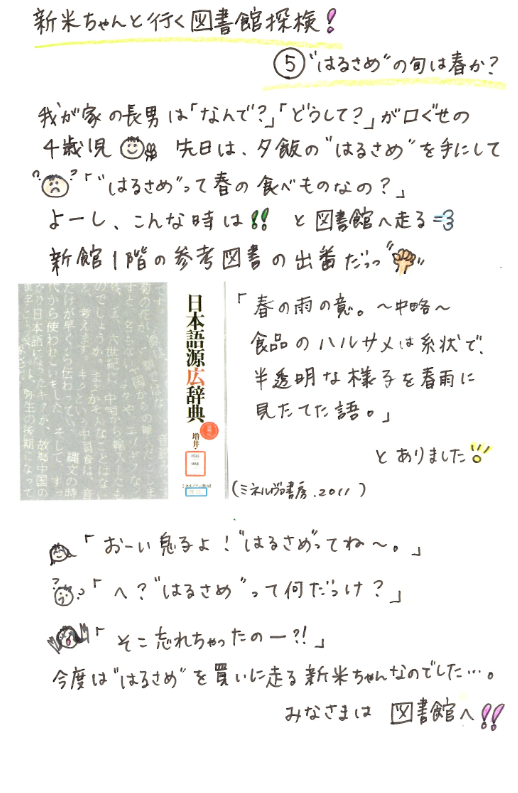 新米ちゃんと行く図書館探検!
⑤"はるさめ"の旬は春か?
我が家の長男は「なんで?」「どうして?」が口ぐせの
4歳児 先日は、夕飯の"はるさめ"を手にして
「"はるさめ"って春の食べものなの?」
よーし、こんな時は!! と図書館へ走る
新館1階の参考図書の出番だっっ
日本語源広辞典
増井
「春の雨の意。〜中略〜
食品のハルサメは糸状で、
半透明な様子を春雨に
見たてた語。」
とありました!
(ミネルヴァ書房.2011)
「おーい息子よ!"はるさめ"ってね〜。」
「へ?"はるさめ"って何だっけ?」
「そこ忘れちゃったのー?!」
今度は"はるさめ"を買いに走る新米ちゃんなのでした…。
みなさまは 図書館へ!!